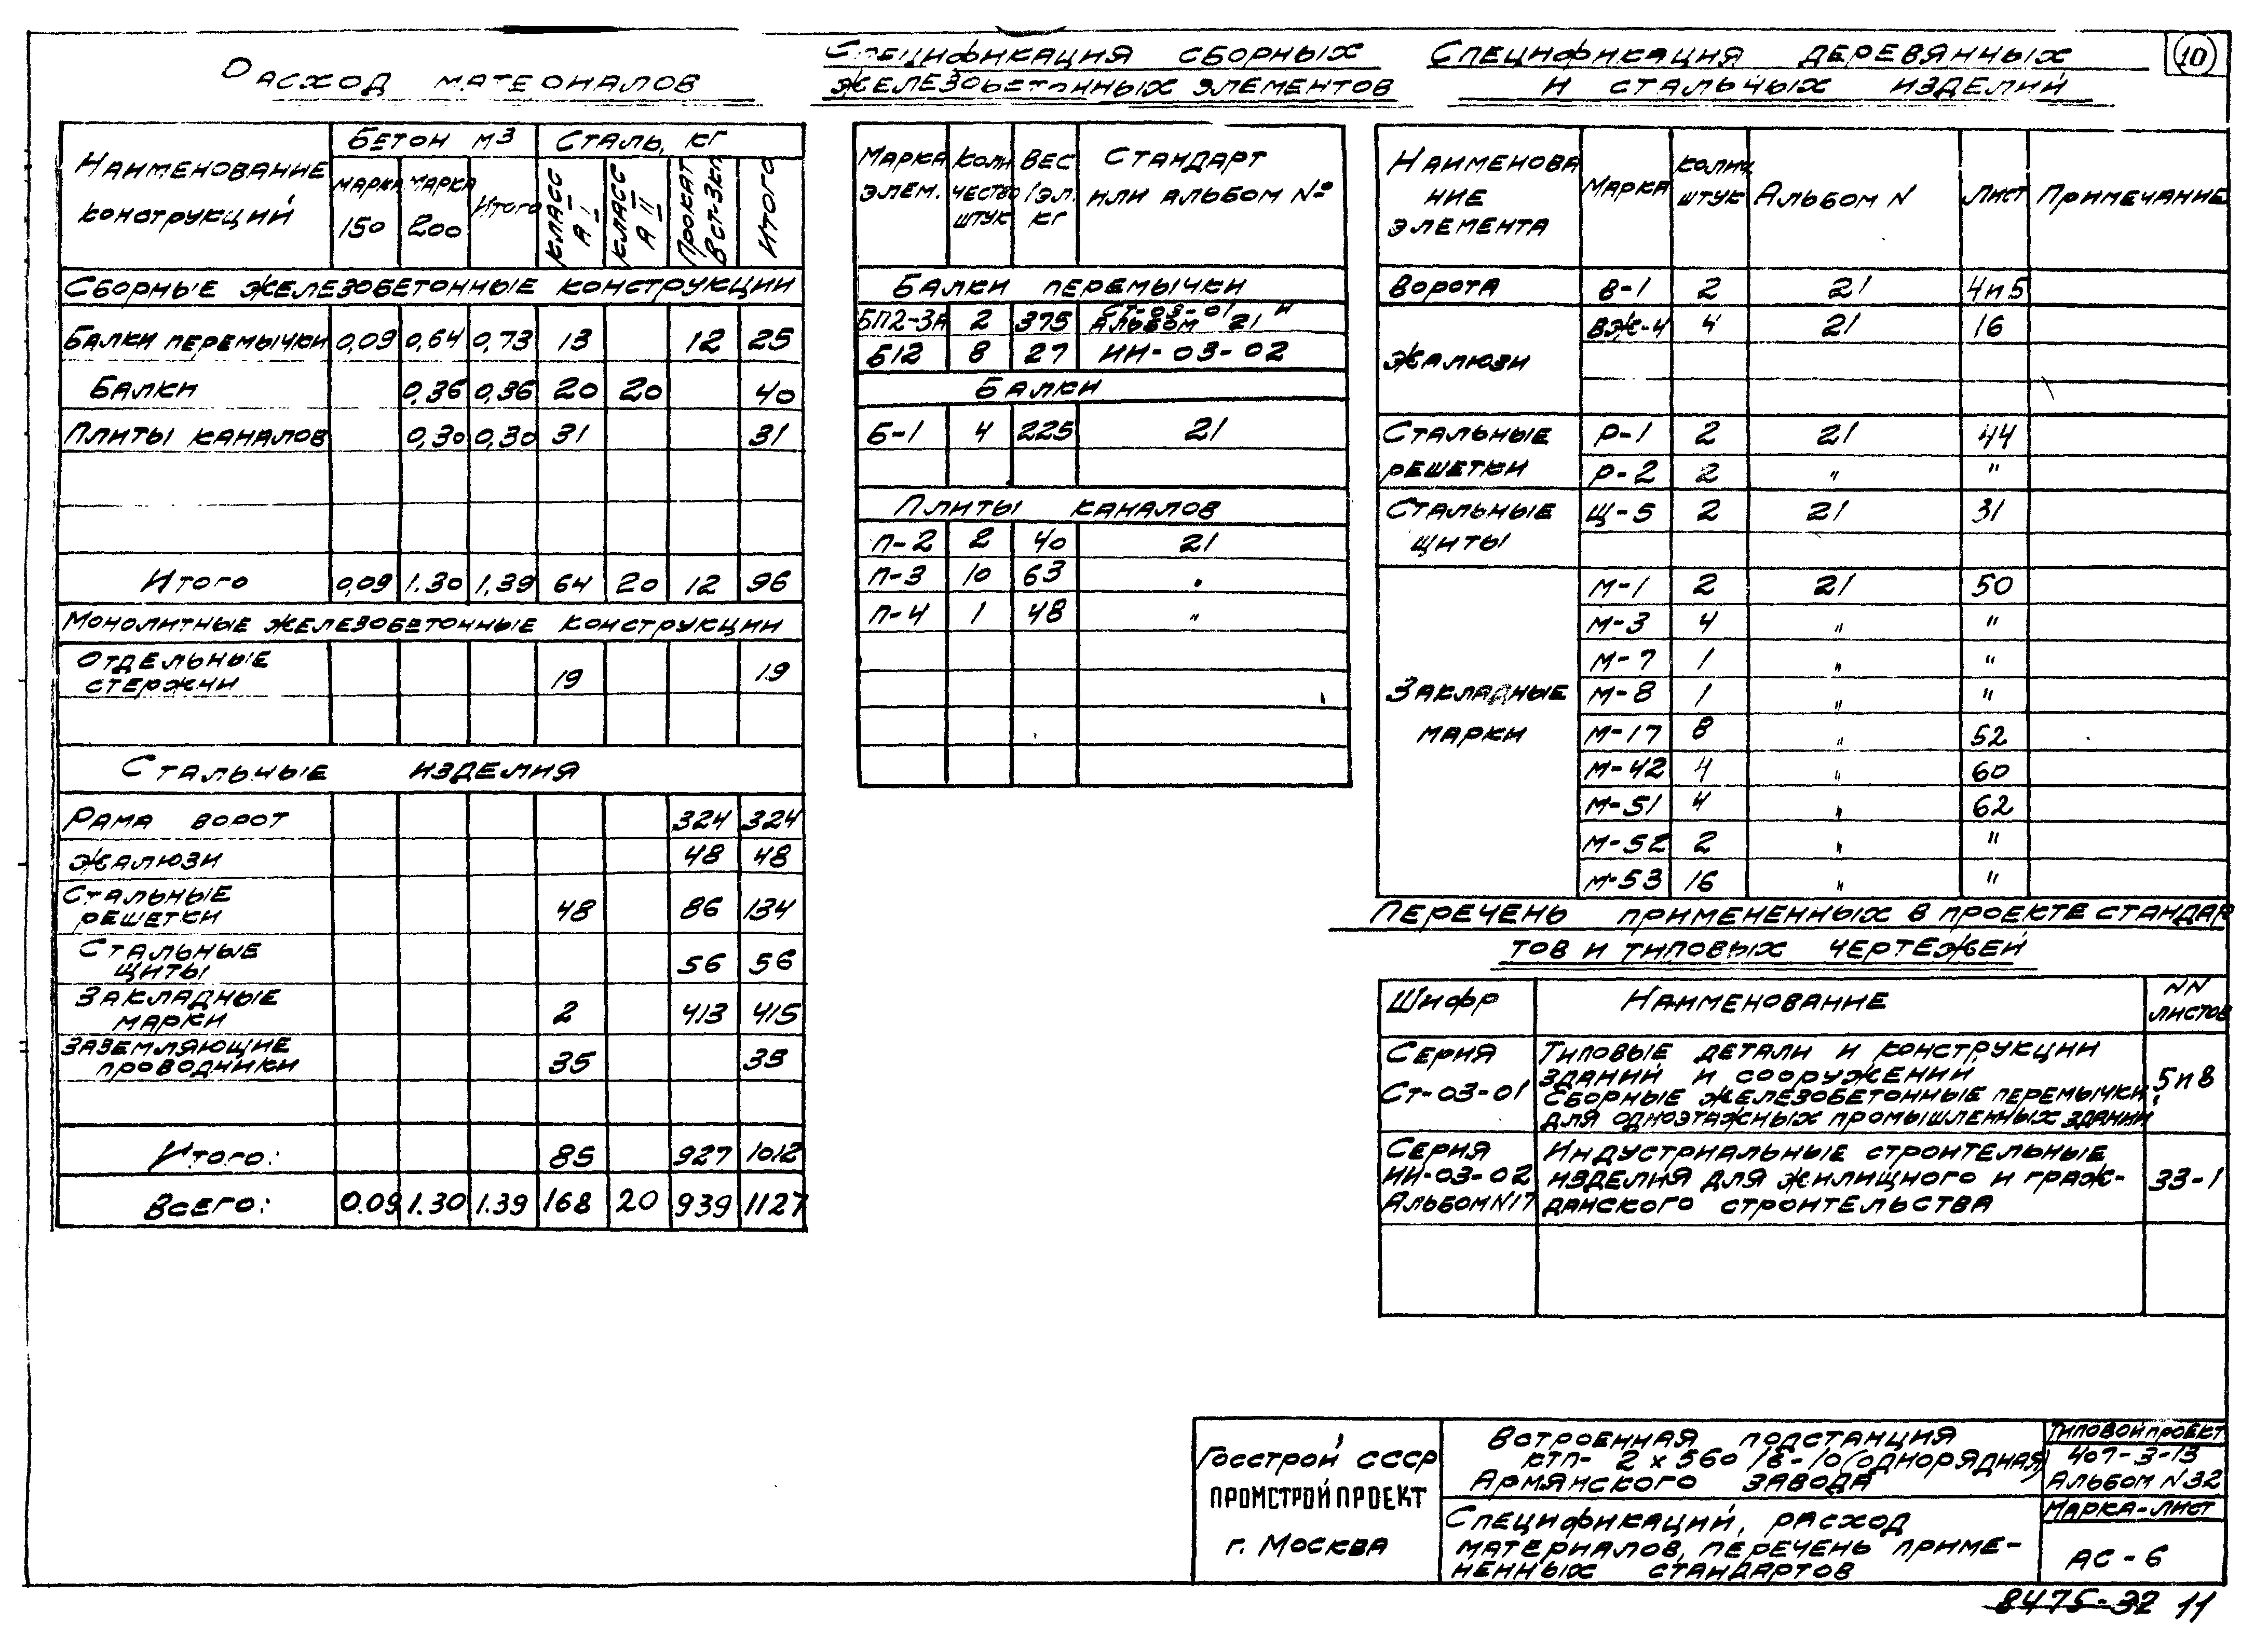 Расход материалов
Спецификация сборных
железобетонных элементов
Спецификация деревянных
и стальных изделий
10
Наименование конструкций | Бетон м3 | Сталь, кг
марка 150 | марка 200 | Итого | класс А I | класс А II | Прокат Вст-3кп | Итого
Сборные железобетонные конструкции
Балки перемычки 0,09 0,64 0,73 13 12 25
Балки 0,36 0,36 20 20 40
Плиты каналов 0,30 0,30 31 31
Итого 0,09 1.30 1,39 64 20 12 96
Монолитные железобетонные конструкции
Отдельные
стержни 19 19
Стальные изделия
Рама ворот 324 324
Жалюзи 48 48
Стальные
решетки 48 86 134
Стальные
щиты 56 56
Закладные
марки 2 413 415
Заземляющие
проводники 35 35
Итого: 85 927 1012
Всего: 0.09 1.30 1.39 168 20 939 1127
Марка элем. | Количество штук | Вес 1 эл. кг | Стандарт или альбом №
Балки перемычки
БП2-3А 2 375 Ст-03-01 и
альбом 21
Б12 8 27 ИИ-03-02
Балки
Б-1 4 225 21
Плиты каналов
П-2 2 40 21
П-3 10 63 "
П-4 1 48 "
Наименование элемента | Марка | колич. штук | Альбом N | Лист | Примечание
Ворота В-1 2 21 4и5
Жалюзи ВЖ-4 4 21 16
Стальные Р-1 2 21 44
решетки Р-2 2 " "
Стальные Щ-5 2 21 31
щиты
Закладные
марки
М-1 2 21 50
М-3 4 " "
М-7 1 " "
М-8 1 " "
М-17 8 " 52
М-42 4 " 60
М-51 4 " 62
М-52 2 " "
М-53 16 " "
Перечень примененных в проекте стандар
тов и типовых чертежей
Шифр | Наименование | NN листов
Серия
Ст-03-01
Типовые детали и конструкции
зданий и сооружений
Сборные железобетонные перемычки
для одноэтажных промышленных зданий
5и8
Серия
ИИ-03-02
Альбом N17
Индустриальные строительные
изделия для жилищного и граж-
данского строительства
33-1
Госстрой СССР
ПРОМСТРОЙПРОЕКТ
г. Москва
Встроенная подстанция
КТП- 2х560/6-10 (однорядная)
Армянского завода
Спецификаций, расход
материалов, перечень приме-
ненных стандартов
Типовой проект
407-3-13
Альбом N 32
Марка-лист
АС-6
8475-32 11